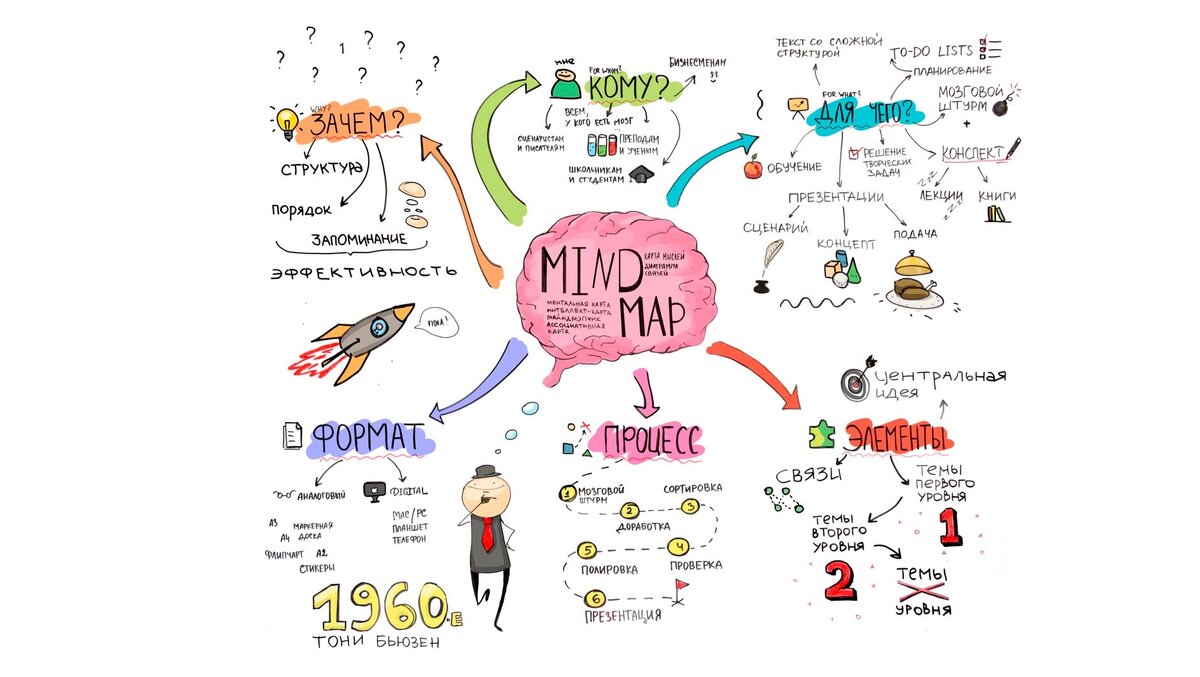 MIND
MAP
КАРТА МЫСЛЕЙ
ДИАГРАММА
СВЯЗЕЙ
МЕНТАЛЬНАЯ КАРТА
ИНТЕЛЛЕКТ-КАРТА
МАЙНДМЭПЧИК
АССОЦИАТИВНАЯ
КАРТА
? ? 1 ? ? ? ? ? ? ?
WHY?
ЗАЧЕМ?
СТРУКТУРА
ПОРЯДОК
ЗАПОМИНАНИЕ
ЭФФЕКТИВНОСТЬ
ПОКА!
МНЕ
FOR WHOM?
КОМУ?
БИЗНЕСМЕНАМ
ВСЕМ,
У КОГО ЕСТЬ МОЗГ
СЦЕНАРИСТАМ
И ПИСАТЕЛЯМ
ПРЕПОДАМ
И УЧЕНЫМ
ШКОЛЬНИКАМ
И СТУДЕНТАМ
ТЕКСТ СО СЛОЖНОЙ
СТРУКТУРОЙ
TO-DO LISTS
ПЛАНИРОВАНИЕ
FOR WHAT?
ДЛЯ ЧЕГО?
МОЗГОВОЙ
ШТУРМ
+
КОНСПЕКТ
ЛЕКЦИИ
КНИГИ
ОБУЧЕНИЕ
РЕШЕНИЕ
ТВОРЧЕСКИХ
ЗАДАЧ
ПРЕЗЕНТАЦИИ
СЦЕНАРИЙ
КОНЦЕПТ
ПОДАЧА
ФОРМАТ
АНАЛОГОВЫЙ
DIGITAL
А3
МАРКЕРНАЯ
ДОСКА
А4
ФЛИПЧАРТ
А2
СТИКЕРЫ
MAC/PC
ПЛАНШЕТ
ТЕЛЕФОН
1960-Е
ТОНИ БЬЮЗЕН
ПРОЦЕСС
1 МОЗГОВОЙ
ШТУРМ
2
ДОРАБОТКА
СОРТИРОВКА
3
4
ПРОВЕРКА
5
ПОЛИРОВКА
6
ПРЕЗЕНТАЦИЯ
ЦЕНТРАЛЬНАЯ
ИДЕЯ
ЭЛЕМЕНТЫ
СВЯЗИ
ТЕМЫ
ПЕРВОГО
УРОВНЯ
1
ТЕМЫ
ВТОРОГО
УРОВНЯ
2
ТЕМЫ
X
УРОВНЯ